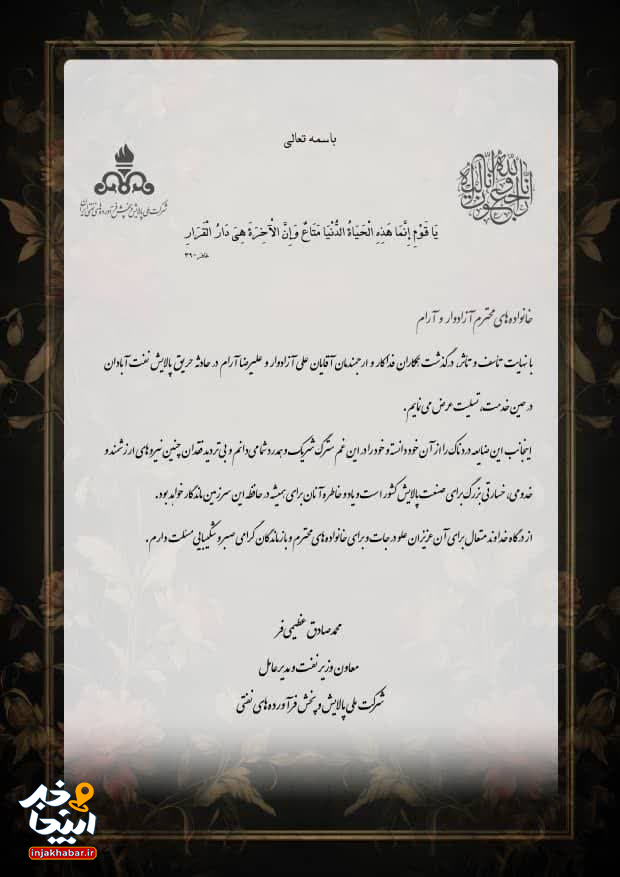 باسمه تعالی
إنا لله وإنا إليه راجعون
شرکت ملی پالایش و پخش فرآورده‌های نفتی ایران
يَا قَوْمِ إِنَّمَا هَذِهِ الْحَيَاةُ الدُّنْيَا مَتَاعٌ وَإِنَّ الْآخِرَةَ هِيَ دَارُ الْقَرَارِ
غافر-۳۹
خانواده‌های محترم آزادوار و آرام
با نهایت تاسف و تاثر، درگذشت همکاران فداکار و ارجمندمان آقایان علی آزادوار و علیرضا آرام در حادثه حریق پالایش نفت آبادان
در حین خدمت، تسلیت عرض می نمایم.
اینجانب این ضایعه دردناک را از آن خود دانسته و خود را در این غم سترگ شریک و همدرد شما می دانم و بی تردید فقدان چنین نیروهای ارزشمند و
خدومی، خسارتی بزرگ برای صنعت پالایش کشور است و یاد و خاطره آنان برای همیشه در حافظه این سرزمین ماندگار خواهد بود.
از درگاه خداوند متعال برای آن عزیزان علو درجات و برای خانواده های محترم و بازماندگان گرامی صبر و شکیبایی مسئلت دارم.
محمدصادق عظیمی فر
معاون وزیر نفت و مدیرعامل
شرکت ملی پالایش و پخش فرآورده های نفتی
اینجا خبر
injakhabar.ir